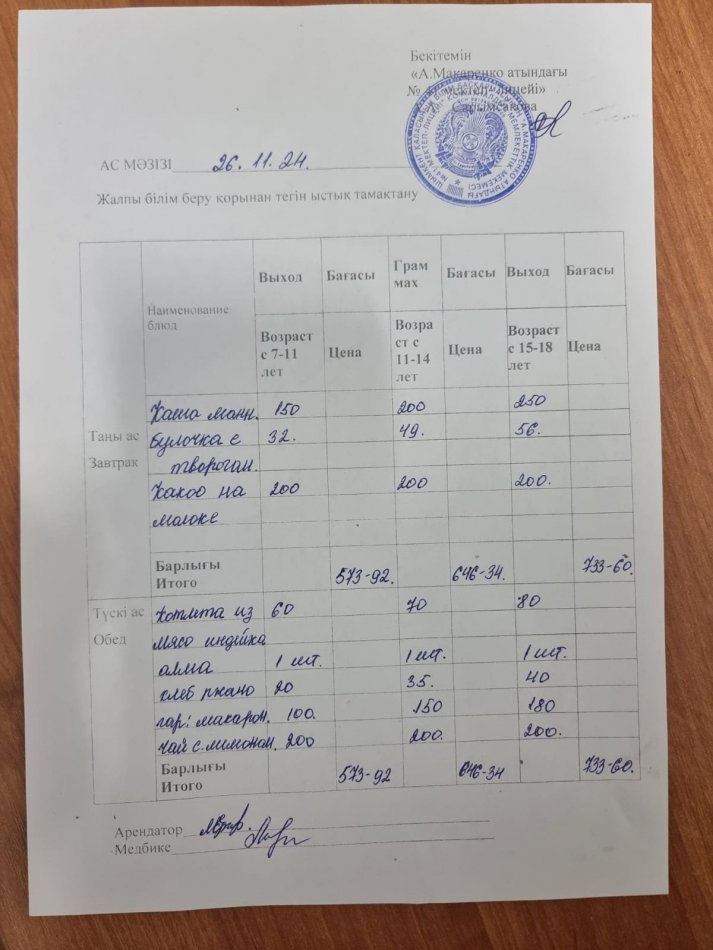 Бекітемін
«А.Макаренко атындағы
№ мектеп-лицейі»
Сарымсакова
АС МӘЗІЗІ 26. 11. 24.
Жалпы білім беру қорынан тегін ыстық тамақтану
Наименование блюд Выход Бағасы Грам мах Бағасы Выход Бағасы
Возраст с 7-11 лет Цена Возра ст с 11-14 лет Цена Возраст с 15-18 лет Цена
Таңы ас
Завтрак
Каша манн. 150 200 250
булочка с 32. 49. 56.
творогам.
Какао на 200 200 200.
малоке
Барлығы
Итого 573-92. 646-34. 733-60.
Түскі ас
Обед
котлета из 60 70 80
мясо индійка
алма 1 шт. 1 шт. 1 шт.
хлеб ржано 20 35. 40
гар: макарон. 100. 150 180
чай с лимоном. 200 200. 200.
Барлығы
Итого 573-92 646-34 733-60.
Арендатор
Медбике